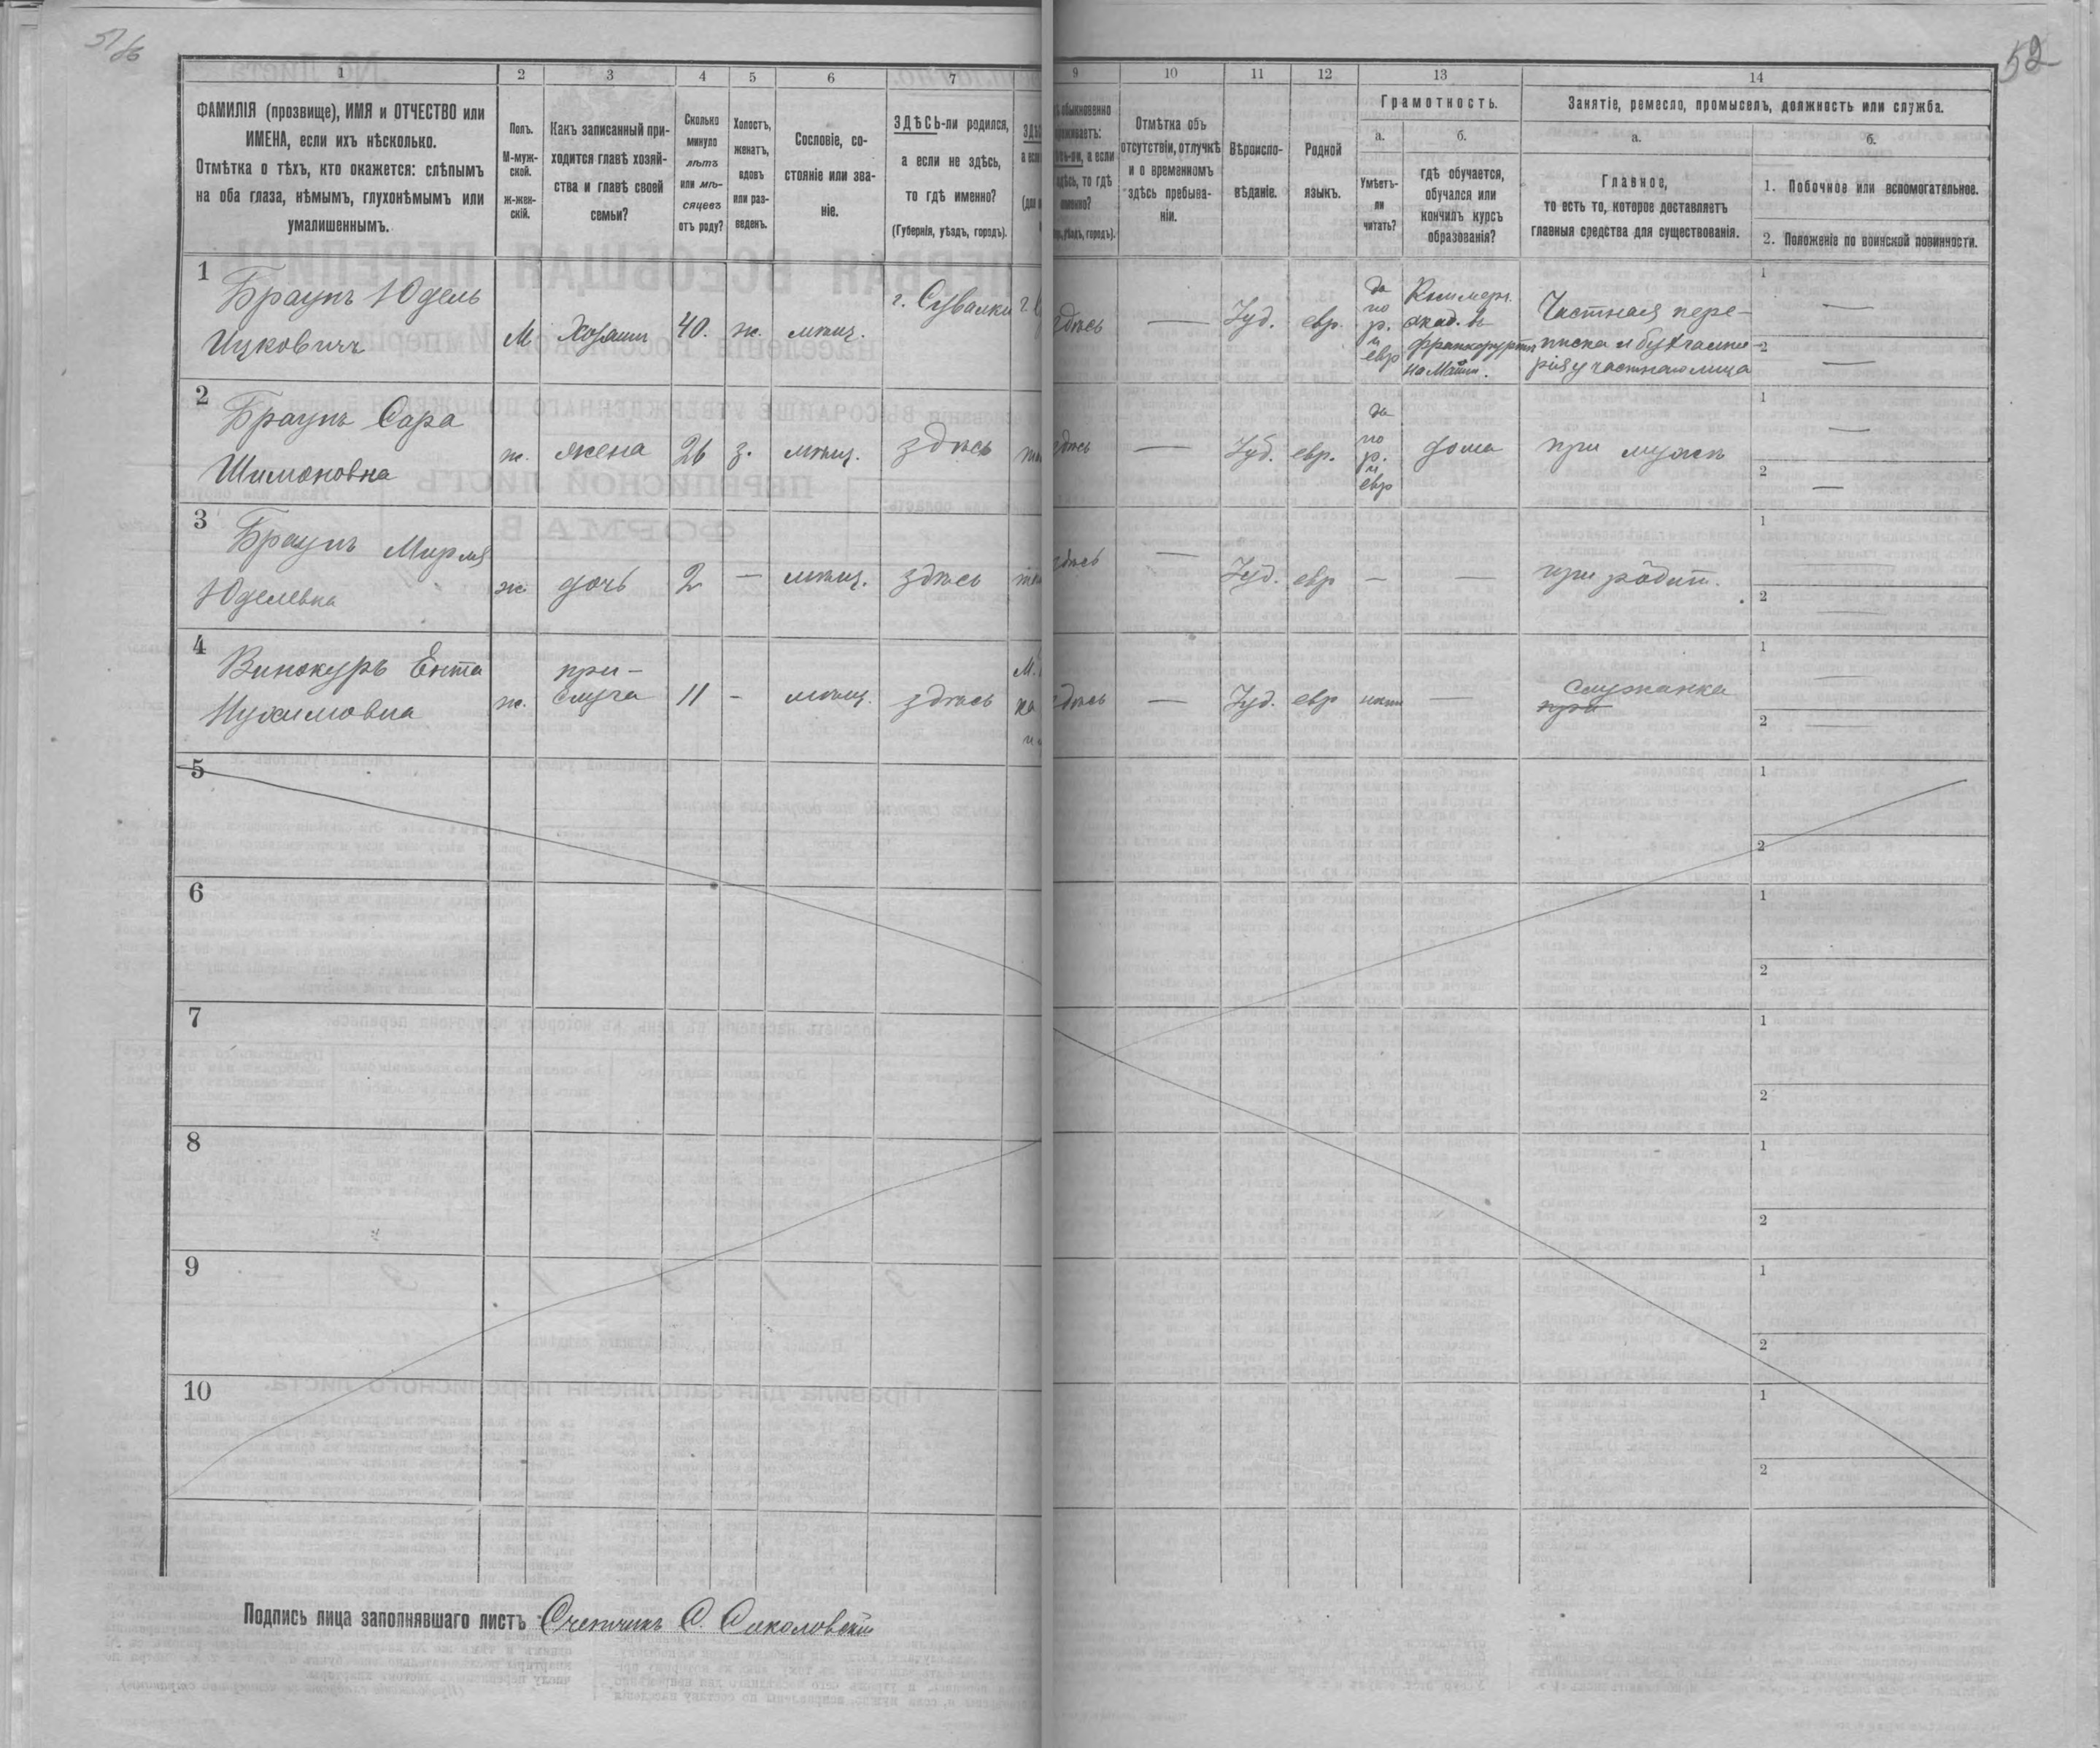 51 об
52
1 2 3 4 5 6 7
ФАМИЛІЯ (прозвище), ИМЯ и ОТЧЕСТВО или
ИМЕНА, если ихъ нѣсколько.
Отмѣтка о тѣхъ, кто окажется: слѣпымъ
на оба глаза, нѣмымъ, глухонѣмымъ или
умалишеннымъ.
Полъ.
М-муж-
ской.
ж-жен-
скій.
Какъ записанный при-
ходится главѣ хозяй-
ства и главѣ своей
семьи?
Сколько
минуло
лѣтъ
или мѣ-
сяцевъ
отъ роду?
Холостъ,
женатъ,
вдовъ
или раз-
веденъ.
Сословіе, со-
стояніе или зва-
ніе.
ЗДѢСЬ-ли родился,
а если не здѣсь,
то гдѣ именно?
(Губернія, уѣздъ, городъ).
9 10 11 12 13 14
обыкновенно
проживаетъ:
здѣсь-ли, а если
не здѣсь, то гдѣ
именно?
уѣздъ, городъ).
Отмѣтка объ
отсутствіи, отлучкѣ
и о временномъ
здѣсь пребыва-
ніи.
Вѣроиспо-
вѣданіе.
Родной
языкъ.
Грамотность.
а. б.
Умѣетъ-
ли
читать?
гдѣ обучается,
обучался или
кончилъ курсъ
образованія?
Занятіе, ремесло, промыселъ, должность или служба.
а. б.
Главное,
то есть то, которое доставляетъ
главныя средства для существованія.
1. Побочное или вспомогательное.
2. Положеніе по воинской повинности.
1
Браунъ Юдель
Ицковичъ
М Хозяинъ 40. ж. мѣщ. г. Сувалки
здѣсь — Іуд. евр.
да
по
р.
и
евр
Коммерч.
акад. въ
Франкфуртѣ
на Майнѣ.
Частная пере-
писка и бухгалте-
рія у частнаго лица
1 —
2 —
2
Браунъ Сара
Шимоновна
ж. жена 26 з. мѣщ. здѣсь
здѣсь — Іуд. евр.
да
по
р.
и
евр
дома при мужѣ
1 —
2 —
3
Браунъ Мирля
Юделевна
ж. дочь 2 — мѣщ. здѣсь
здѣсь — Іуд. евр — — при родит.
1 —
2 —
4
Винокуръ Ента
Нухимовна
ж. при-
слуга 11 - мѣщ. здѣсь
здѣсь — Іуд. евр нѣтъ —
служанка
при
1 —
2 —
5
1
2
6
1
2
7
1
2
8
1
2
9
1
2
10
1
2
Подпись лица заполнявшаго листъ Счетчикъ С. Соколовскій